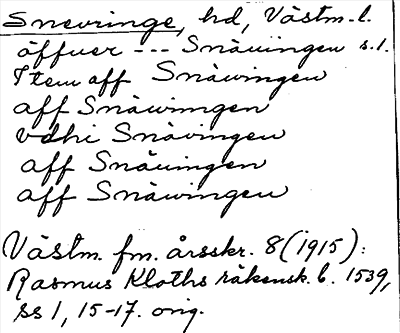 Snevringe, hd, Västm. l.
öffuer --- Snäuingen s. 1.
Item aff Snäwingen
aff Snäwingen
vdhi Snävingen
aff Snäuingen
aff Snäwingen
Västm. fm. årsskr. 8 (1915):
Rasmus Kloths räkensk. b. 1539,
ss 1, 15-17. orig.